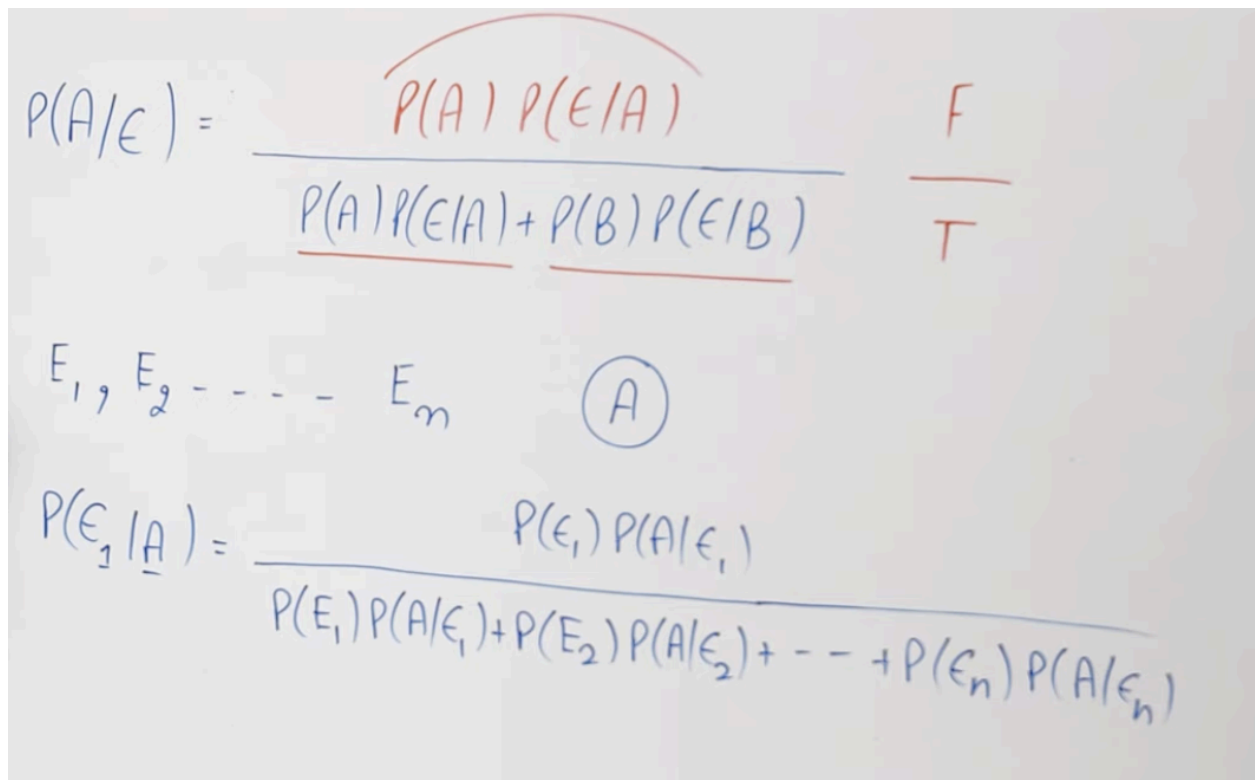 P(A/E) = P(A) P(E/A) / P(A)P(E/A) + P(B)P(E/B)
F / T
E₁, E₂ - - - - Eₙ A
P(E₁/A) = P(E₁) P(A/E₁) / P(E₁)P(A/E₁) + P(E₂)P(A/E₂) + - - + P(Eₙ)P(A/Eₙ)